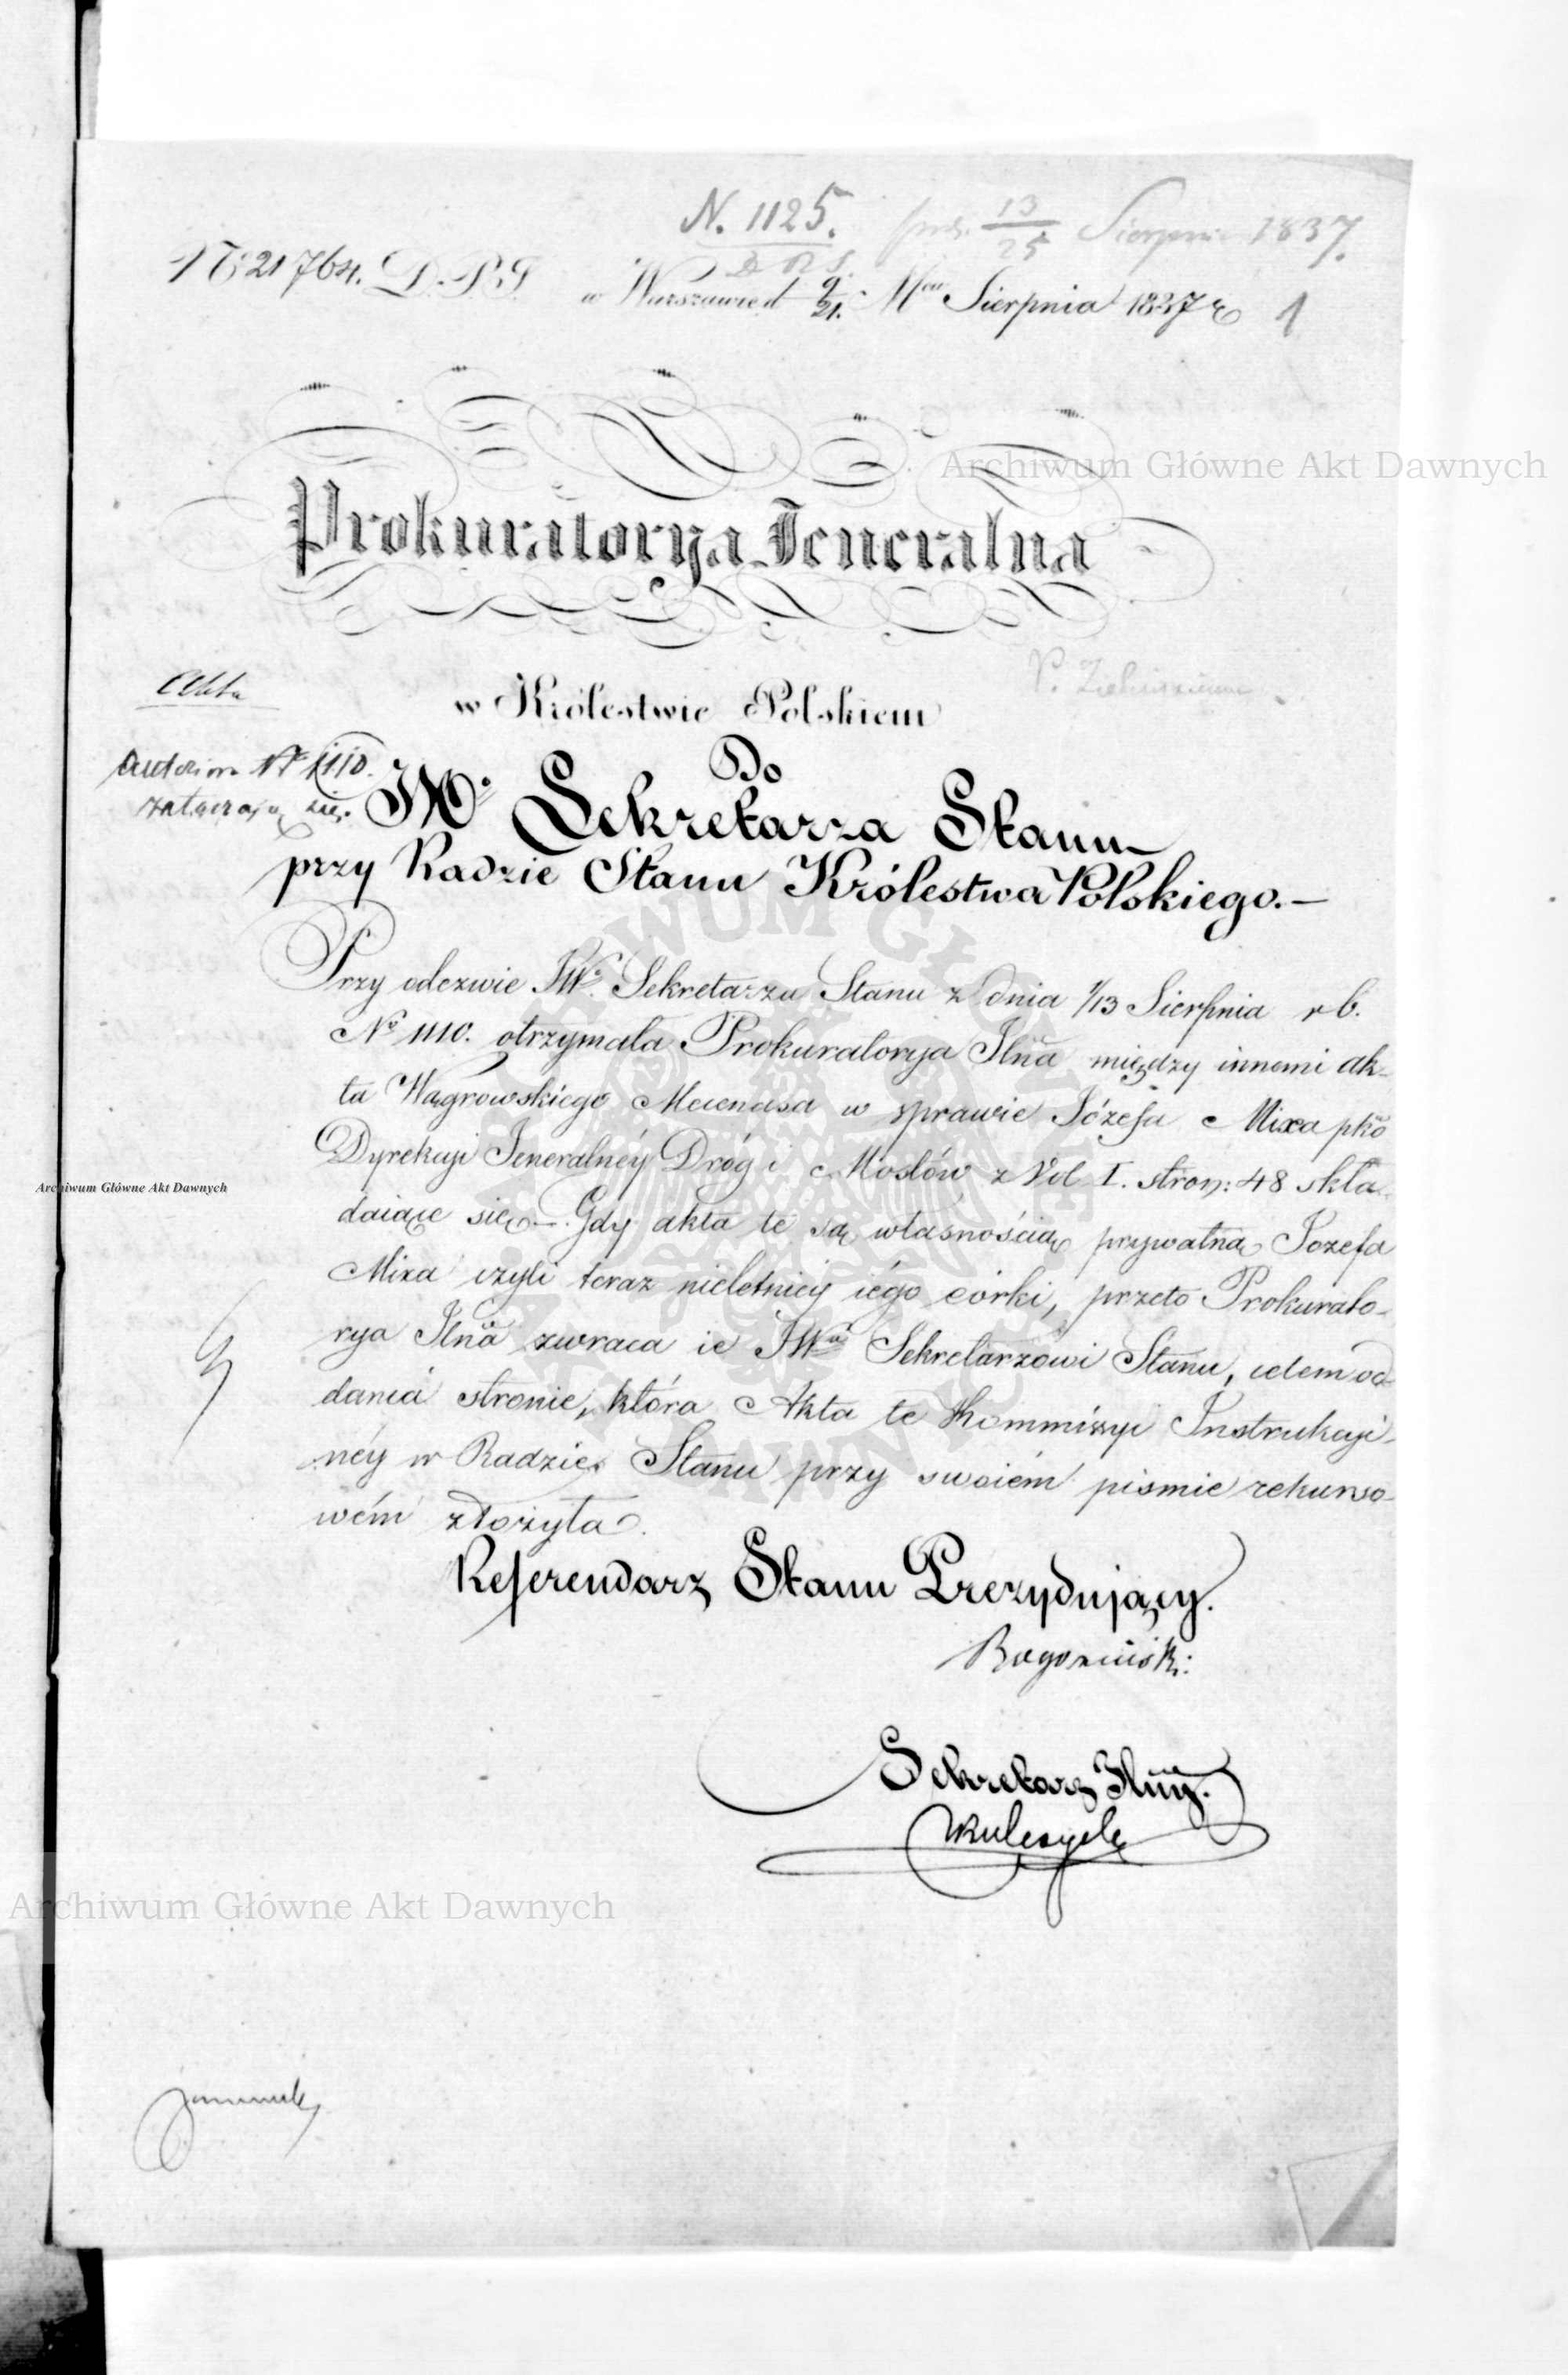 N. 1125.
13/25 Sierpnia 1837.
N 21764. D.P.S
w Warszawie d 9/21. Mca Sierpnia 1837 r
1
Archiwum Główne Akt Dawnych
Prokuratorya Jeneralna
w Królestwie Polskiem
Akta
Do
N 1110.
załączają się.
JW. Sekretarza Stanu
przy Radzie Stanu Królestwa Polskiego.—
Przy odezwie JW. Sekretarza Stanu z dnia 1/13 Sierpnia r b.
No 1110. otrzymała Prokuratorya Jlna między innemi ak-
ta Wągrowskiego Mecenasa w sprawie Józefa Mixa pko
Dyrekcyi Jeneralnéy Dróg i Mostów z Vol I. stron: 48 skła-
daiące się.— Gdy akta te są własnością prywatną Jozefa
Mixa czyli teraz nieletniey iégo córki, przeto Prokurato-
rya Jlna zwraca ie JWu Sekretarzowi Stanu, celem od-
dania stronie, która Akta te Kommissyi Instrukcyi-
néy w Radzie Stanu przy swoiém pismie rekurso-
wém złożyła.
Archiwum Główne Akt Dawnych
Referendarz Stanu Prezydujący.
Sekretarz Jlny.
Archiwum Główne Akt Dawnych